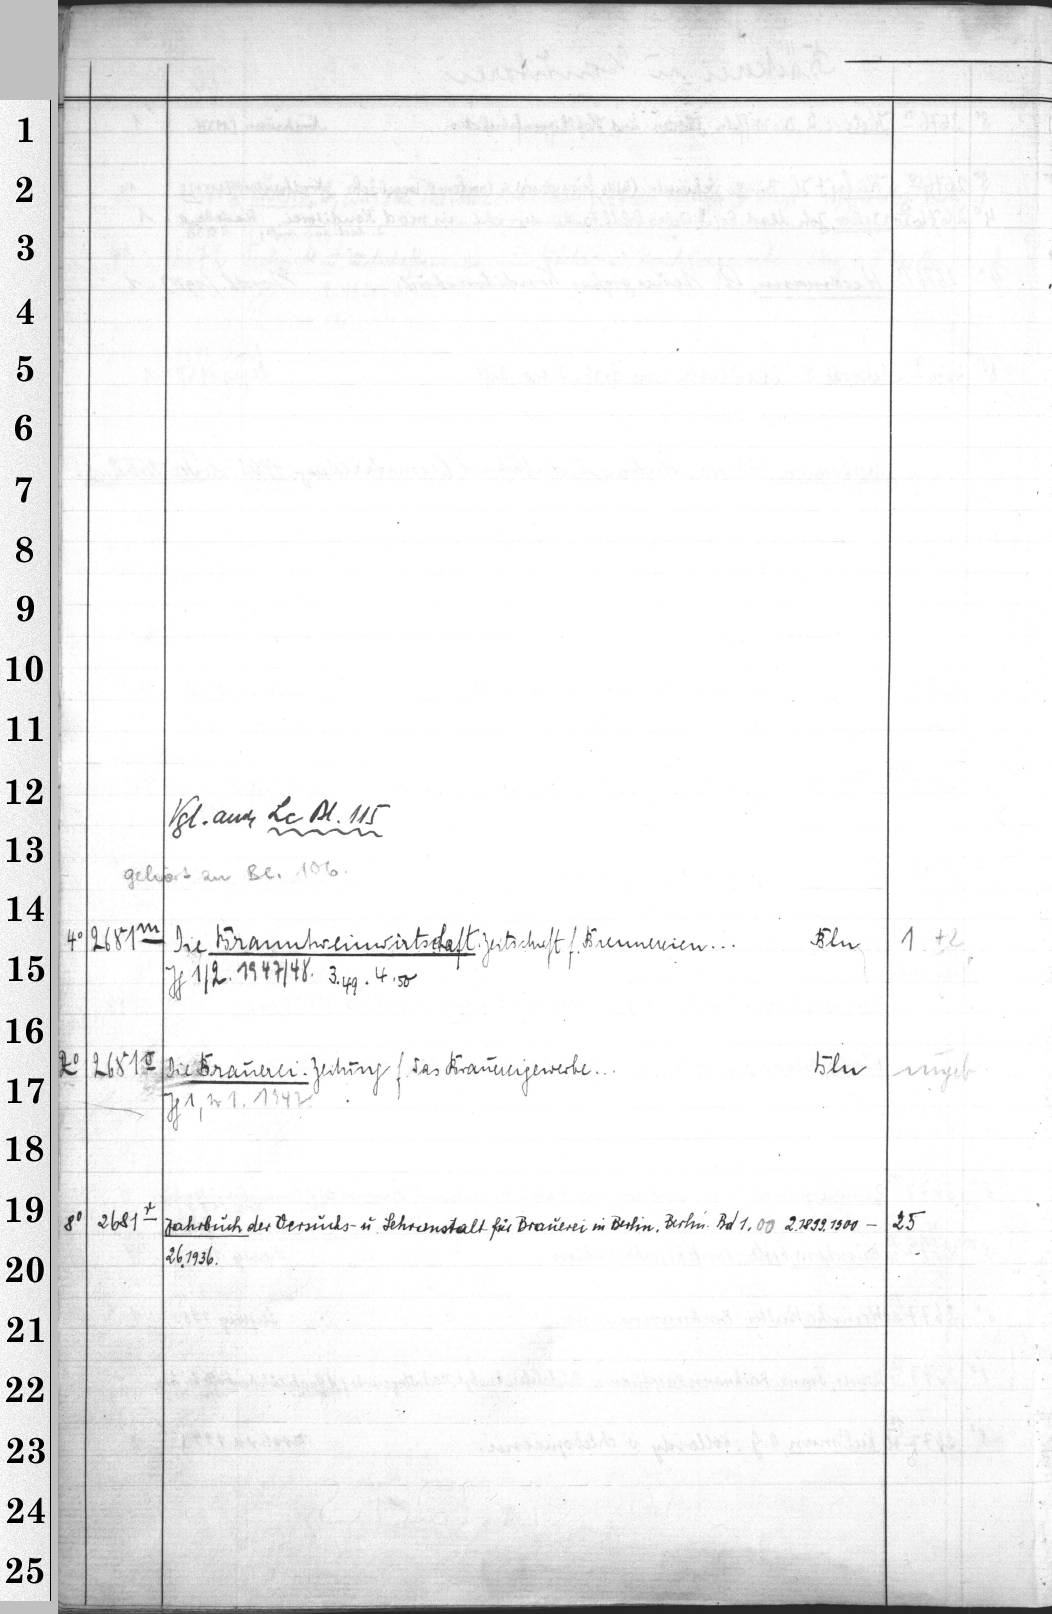 1
2
3
4
5
6
7
8
9
10
11
12
Vgl. auch Lc Bl. 115
13
gehört zu Bl. 106.
14
4° 2681 m Die Branntweinwirtschaft. Zeitschrift f. Brennereien... Bln 1 +2
15
Jg 1/2. 1947/48. 3.49. 4.50
16
2° 2681 Die Brauerei. Zeitung f das Brauereigewerbe... Bln ungeb
17
Jg 1, 1947
18
19
8° 2681 r Jahrbuch der Versuchs- u. Lehranstalt für Brauerei in Berlin. Berlin. Bd 1.00 2.1899.1900 — 25
20
26.1936.
21
22
23
24
25